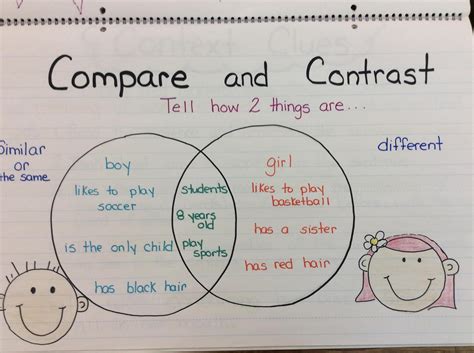 Context Clues
Compare and Contrast
Tell how 2 things are...
Similar
or
the same
different
boy
likes to play
soccer
is the only child
has black hair
students
8 years
old
play
sports
girl
likes to play
basketball
has a sister
has red hair